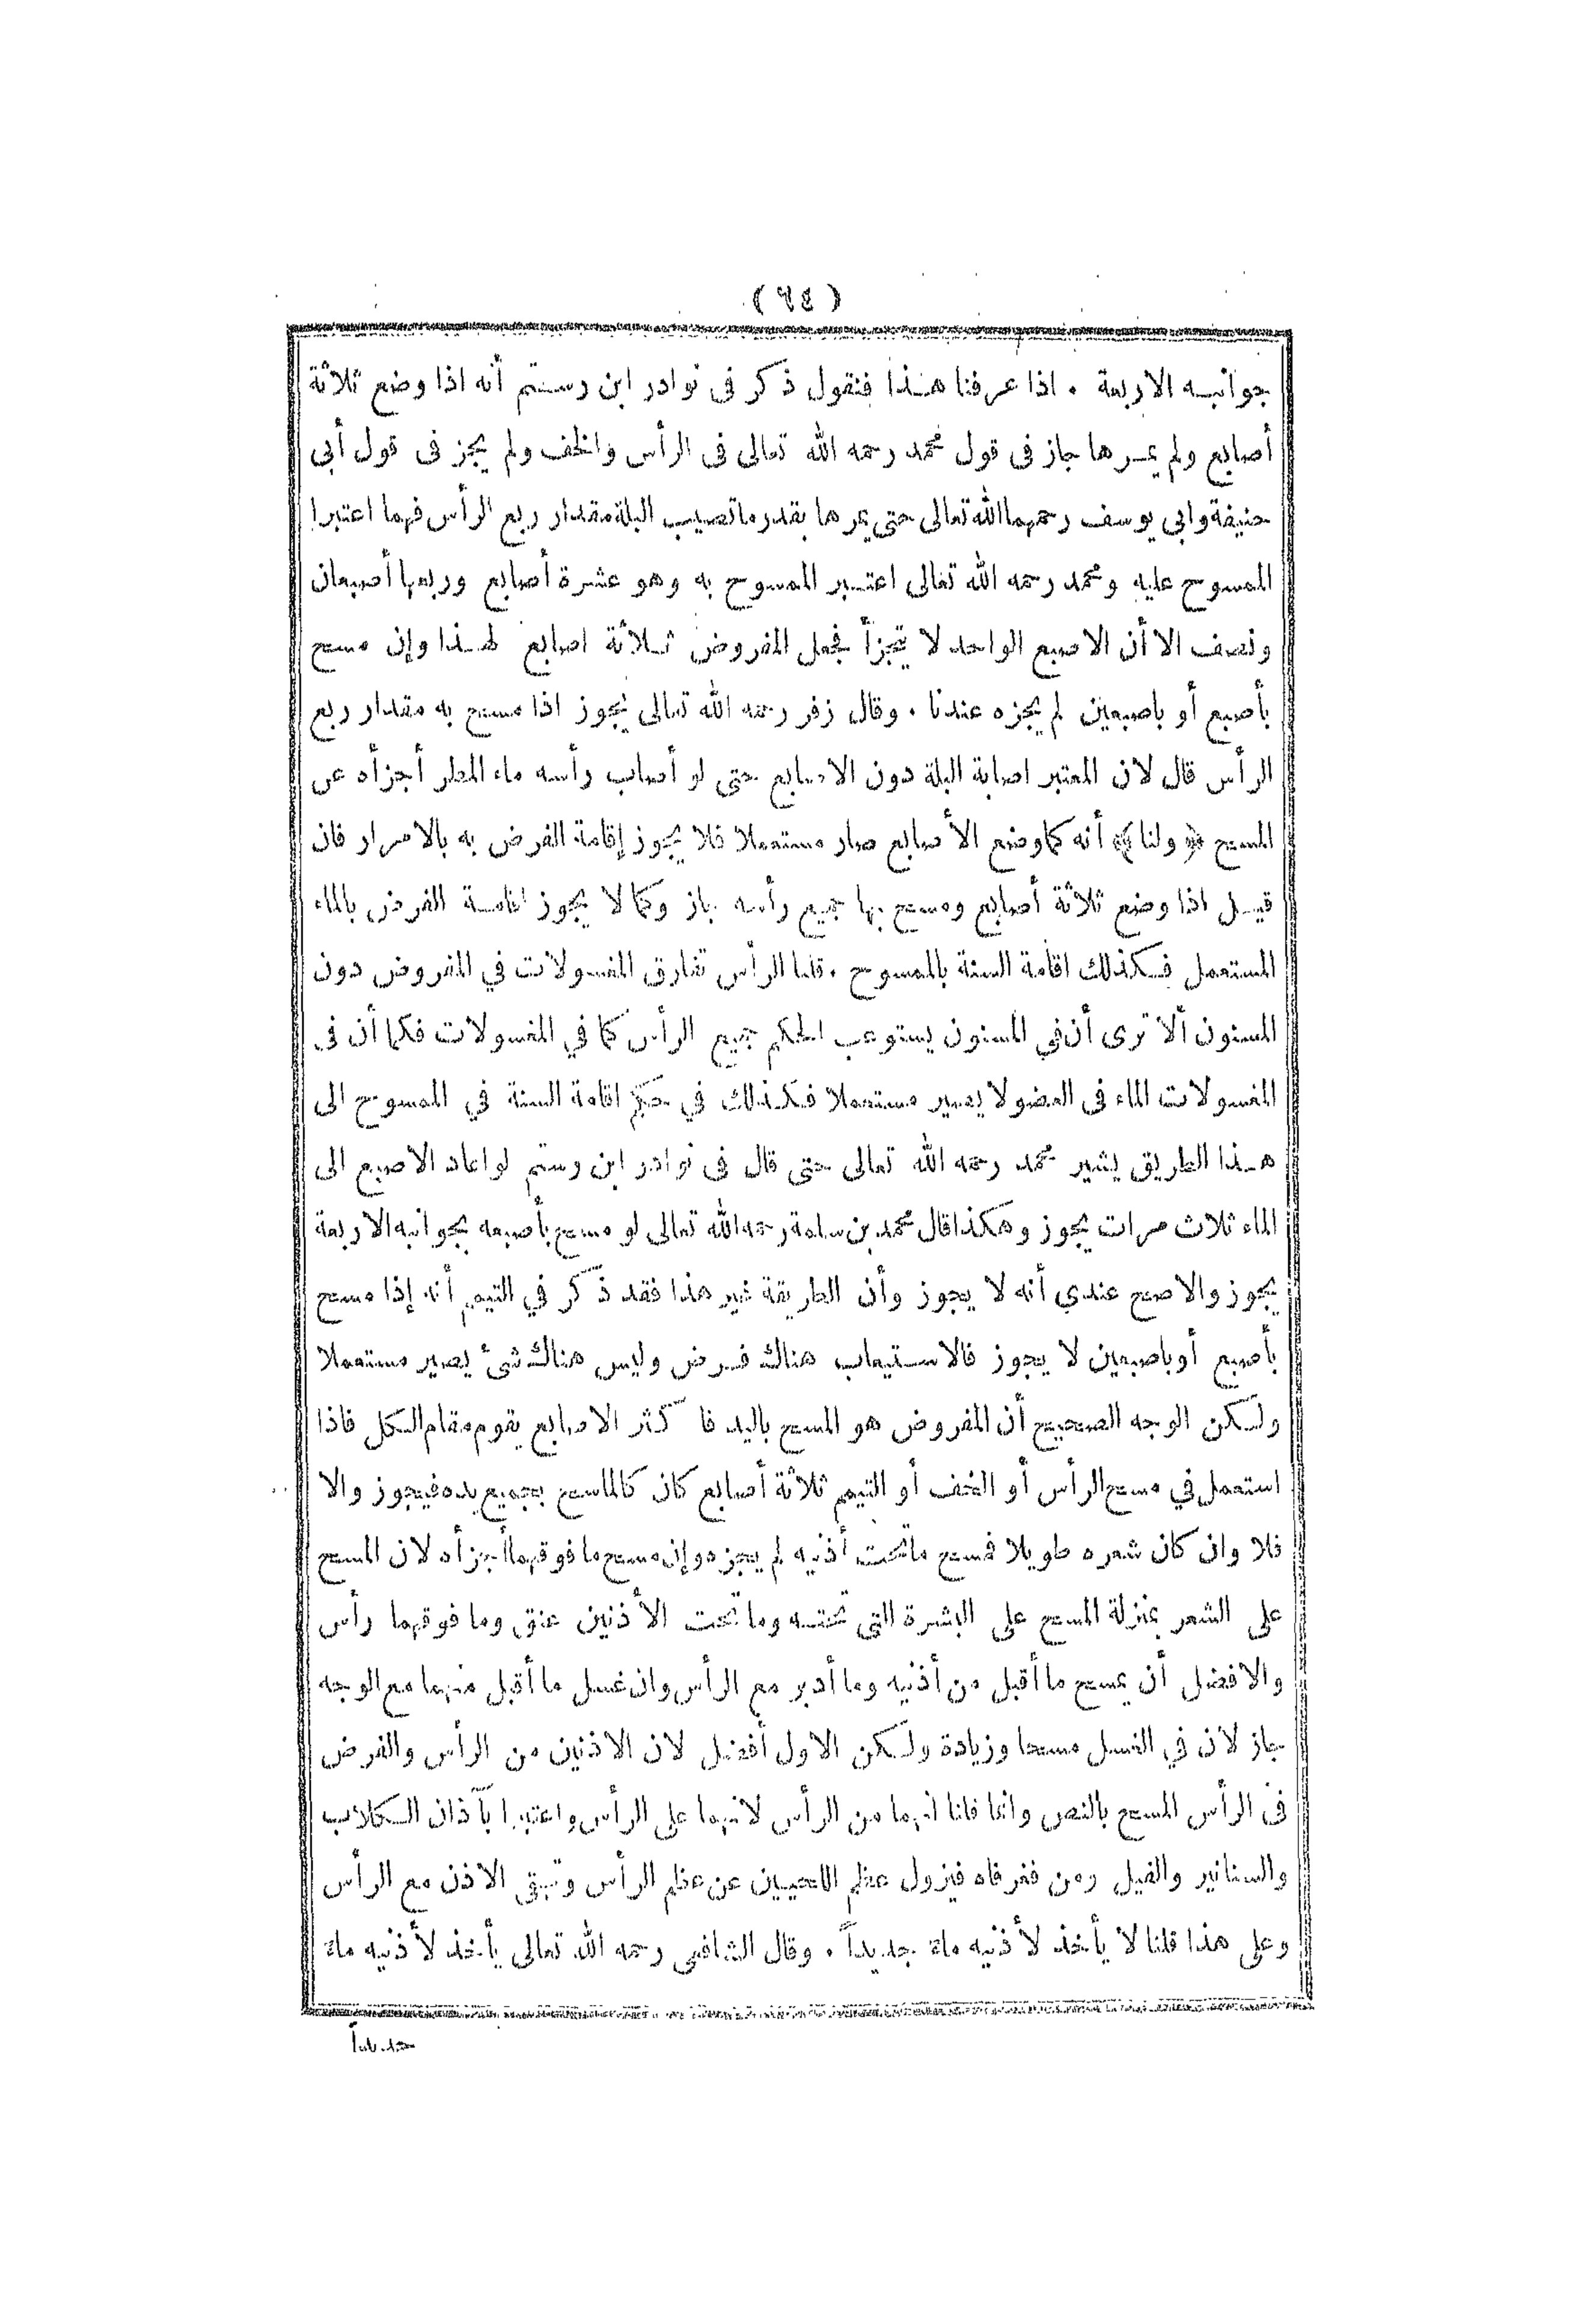 ( ٦٤ )
جوانبه الاربعة . اذا عرفنا هذا فنقول ذكر في نوادر ابن رستم أنه اذا وضع ثلاثة
أصابع ولم يمرها جاز في قول محمد رحمه الله تعالى في الرأس والخف ولم يجز في قول أبي
حنيفة وابي يوسف رحمهما الله تعالى حتى يمرها بقدر ما تصيب البلة مقدار ربع الرأس فهما اعتبرا
الممسوح عليه ومحمد رحمه الله تعالى اعتبر الممسوح به وهو عشرة أصابع وربعها أصبعان
ونصف الا أن الاصبع الواحد لا يتجزأ فجعل المفروض ثلاثة اصابع لهذا وإن مسح
بأصبع أو باصبعين لم يجزه عندنا . وقال زفر رحمه الله تعالى يجوز اذا مسح به مقدار ربع
الرأس قال لان المعتبر اصابة البلة دون الاصابع حتى لو أصاب رأسه ماء المطر أجزأه عن
المسح ﴿ ولنا ﴾ أنه كما وضع الأصابع صار مستعملا فلا يجوز إقامة الفرض به بالامرار فان
قيل اذا وضع ثلاثة أصابع ومسح بها جميع رأسه جاز وكما لا يجوز اقامة الفرض بالماء
المستعمل فكذلك اقامة السنة بالممسوح . قلنا الرأس تفارق المغسولات في المفروض دون
المسنون ألا ترى أن في المسنون يستوعب الحكم جميع الرأس كما في المغسولات فكما أن في
المغسولات الماء في العضو لا يصير مستعملا فكذلك في حكم اقامة السنة في الممسوح الى
هذا الطريق يشير محمد رحمه الله تعالى حتى قال في نوادر ابن رستم لو اعاد الاصبع الى
الماء ثلاث مرات يجوز وهكذا قال محمد بن سلمة رحمه الله تعالى لو مسح بأصبعه بجوانبه الاربعة
يجوز والاصح عندي أنه لا يجوز وأن الطريقة غير هذا فقد ذكر في التيمم أنه إذا مسح
بأصبع أو باصبعين لا يجوز فالاستيعاب هناك فرض وليس هناك شئ يصير مستعملا
ولكن الوجه الصحيح أن المفروض هو المسح باليد فاكثر الاصابع يقوم مقام الكل فاذا
استعمل في مسح الرأس أو الخف أو التيمم ثلاثة أصابع كان كالماسح بجميع يده فيجوز والا
فلا وان كان شعره طويلا فمسح ما تحت أذنيه لم يجزه وإن مسح ما فوقهما أجزأه لان المسح
على الشعر بمنزلة المسح على البشرة التي تحته وما تحت الأذنين عنق وما فوقهما رأس
والافضل أن يمسح ما أقبل من أذنيه وما أدبر مع الرأس وان غسل ما أقبل منهما مع الوجه
جاز لان في الغسل مسحا وزيادة ولكن الاول أفضل لان الاذنين من الرأس والفرض
في الرأس المسح بالنص وانما قلنا انهما من الرأس لانهما على الرأس واعتبرا بآذان الكلاب
والسنانير والفيل ومن فغر فاه فيزول عظم اللحيين عن عظم الرأس وتبقى الاذن مع الرأس
وعلى هذا قلنا لا يأخذ لأذنيه ماءً جديداً . وقال الشافعي رحمه الله تعالى يأخذ لأذنيه ماءً
جديداً